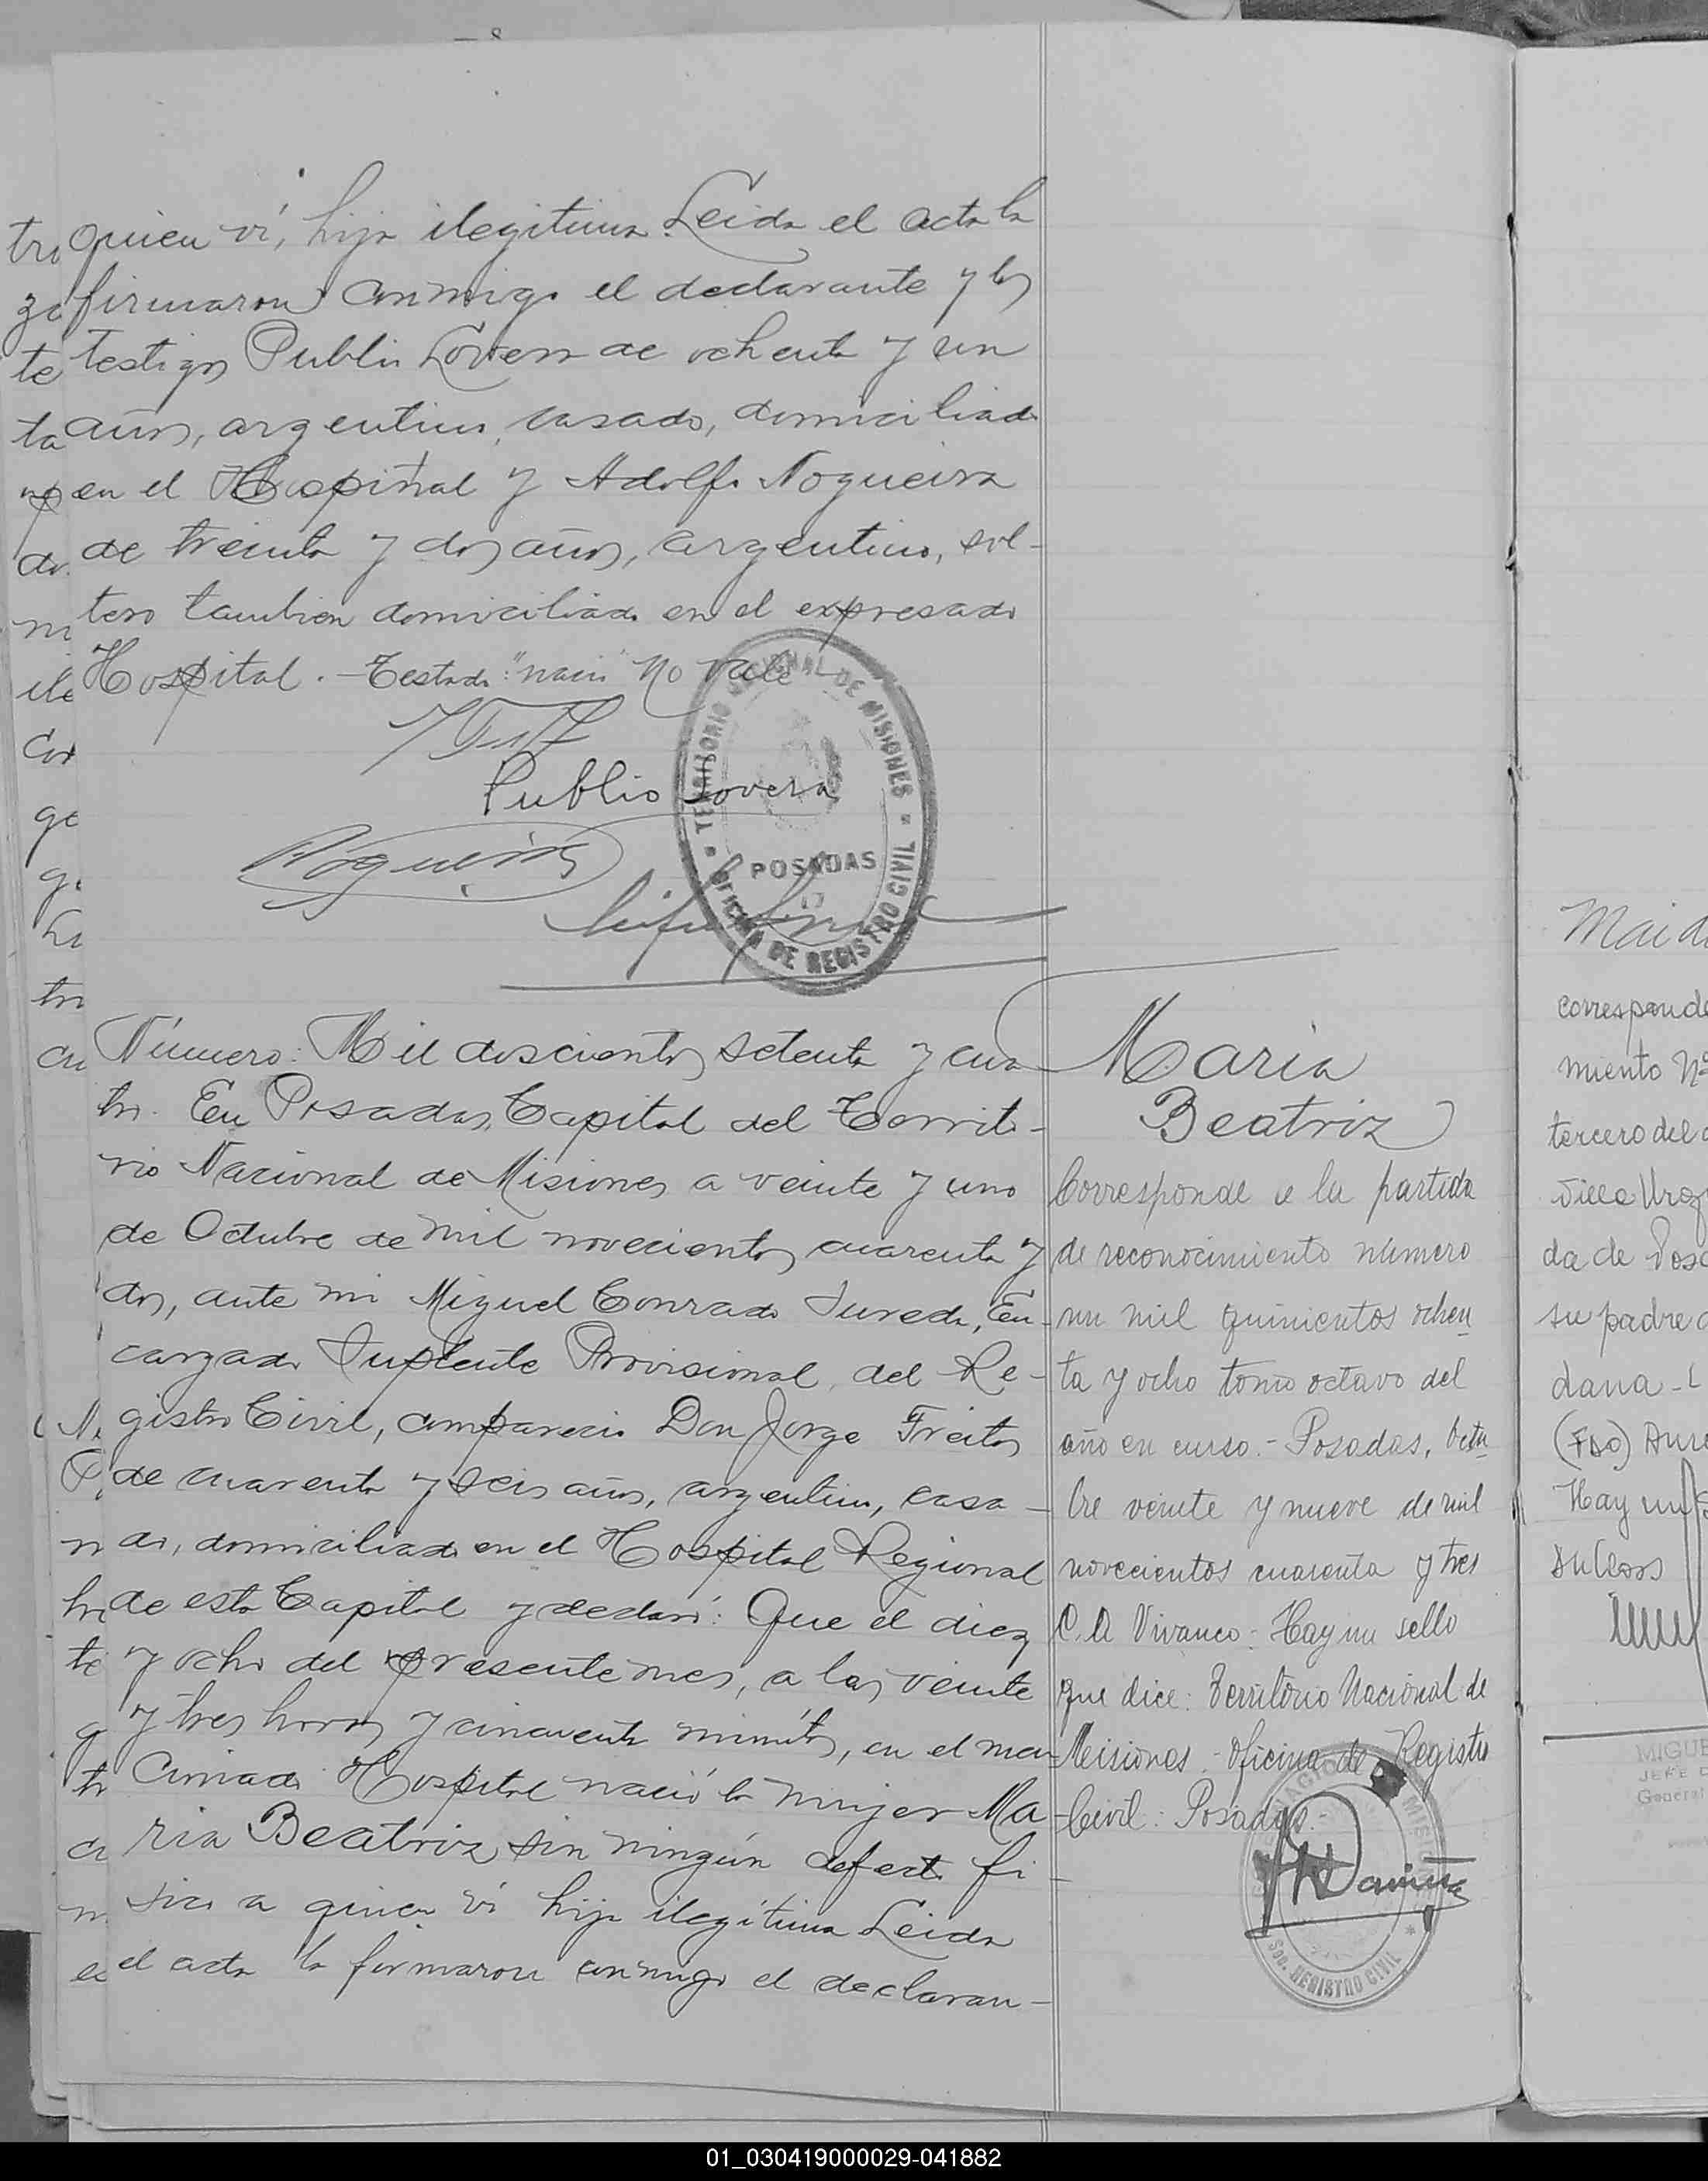 quien ví, hija ilegitima. Leida el acta la
firmaron conmigo el declarante y los
testigos Publio Lovera de ochenta y un
años, argentino, casado, domiciliado
en el Hospital y Adolfo Nogueira
de treinta y dos años, argentino, sol-
tero tambien domiciliado en el expresado
Hospital. - Testado: "nació" No vale
Publio Lovera
Nogueira
TERRITORIO NACIONAL DE MISIONES
POSADAS
OFICINA DE REGISTRO CIVIL
Número: Mil doscientos setenta y cua
tro. En Posadas, Capital del Territo-
rio Nacional de Misiones a veinte y uno
de Octubre de mil novecientos cuarenta y
dos, ante mi Miguel Conrado Sureda, En-
cargado Suplente Provisional, del Re-
gistro Civil, compareció Don Jorge Freitas
de cuarenta y seis años, argentino, casa-
do, domiciliado en el Hospital Regional
de esta Capital y declaró: Que el diez
y ocho del presente mes, a las veinte
y tres horas y cincuenta minutos, en el men-
cionado Hospital nació la mujer Ma-
ria Beatriz sin ningún defecto fi-
sico a quien ví hija ilegítima Leida
el acta la firmaron conmigo el declaran-
Maria
Beatriz
Corresponde a la partida
de reconocimiento número
un mil quinientos ochen
ta y ocho tomo octavo del
año en curso.- Posadas, Octu
bre veinte y nueve de mil
novecientos cuarenta y tres
C. A Vivanco: Hay un sello
que dice: Territorio Nacional de
Misiones - Oficina de Registro
Civil: Posadas.-
REGISTRO CIVIL
corresponde
miento Nº
tercero del
da de Posa
su padre
dana -
(Fdo)
Hay un
MIGUE
JEFE D
General
01_030419000029-041882